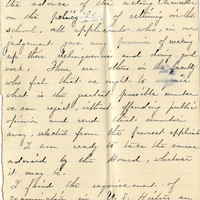 the advice of the acting Chancellor
on the policy of retaining in the
school, all applicants who, in our
judgement gave any promise of making
up their delinquencies and doing good
work. There are others in the faculty
who felt that we ought to
what is the greatest possible number
we can reject, without offending public
opinion and send that number
away, selected from the poorest applicants
I am ready to take the course
advised by the Board, whatever
it may be.
I find the requirement of
examination in U.S. History an